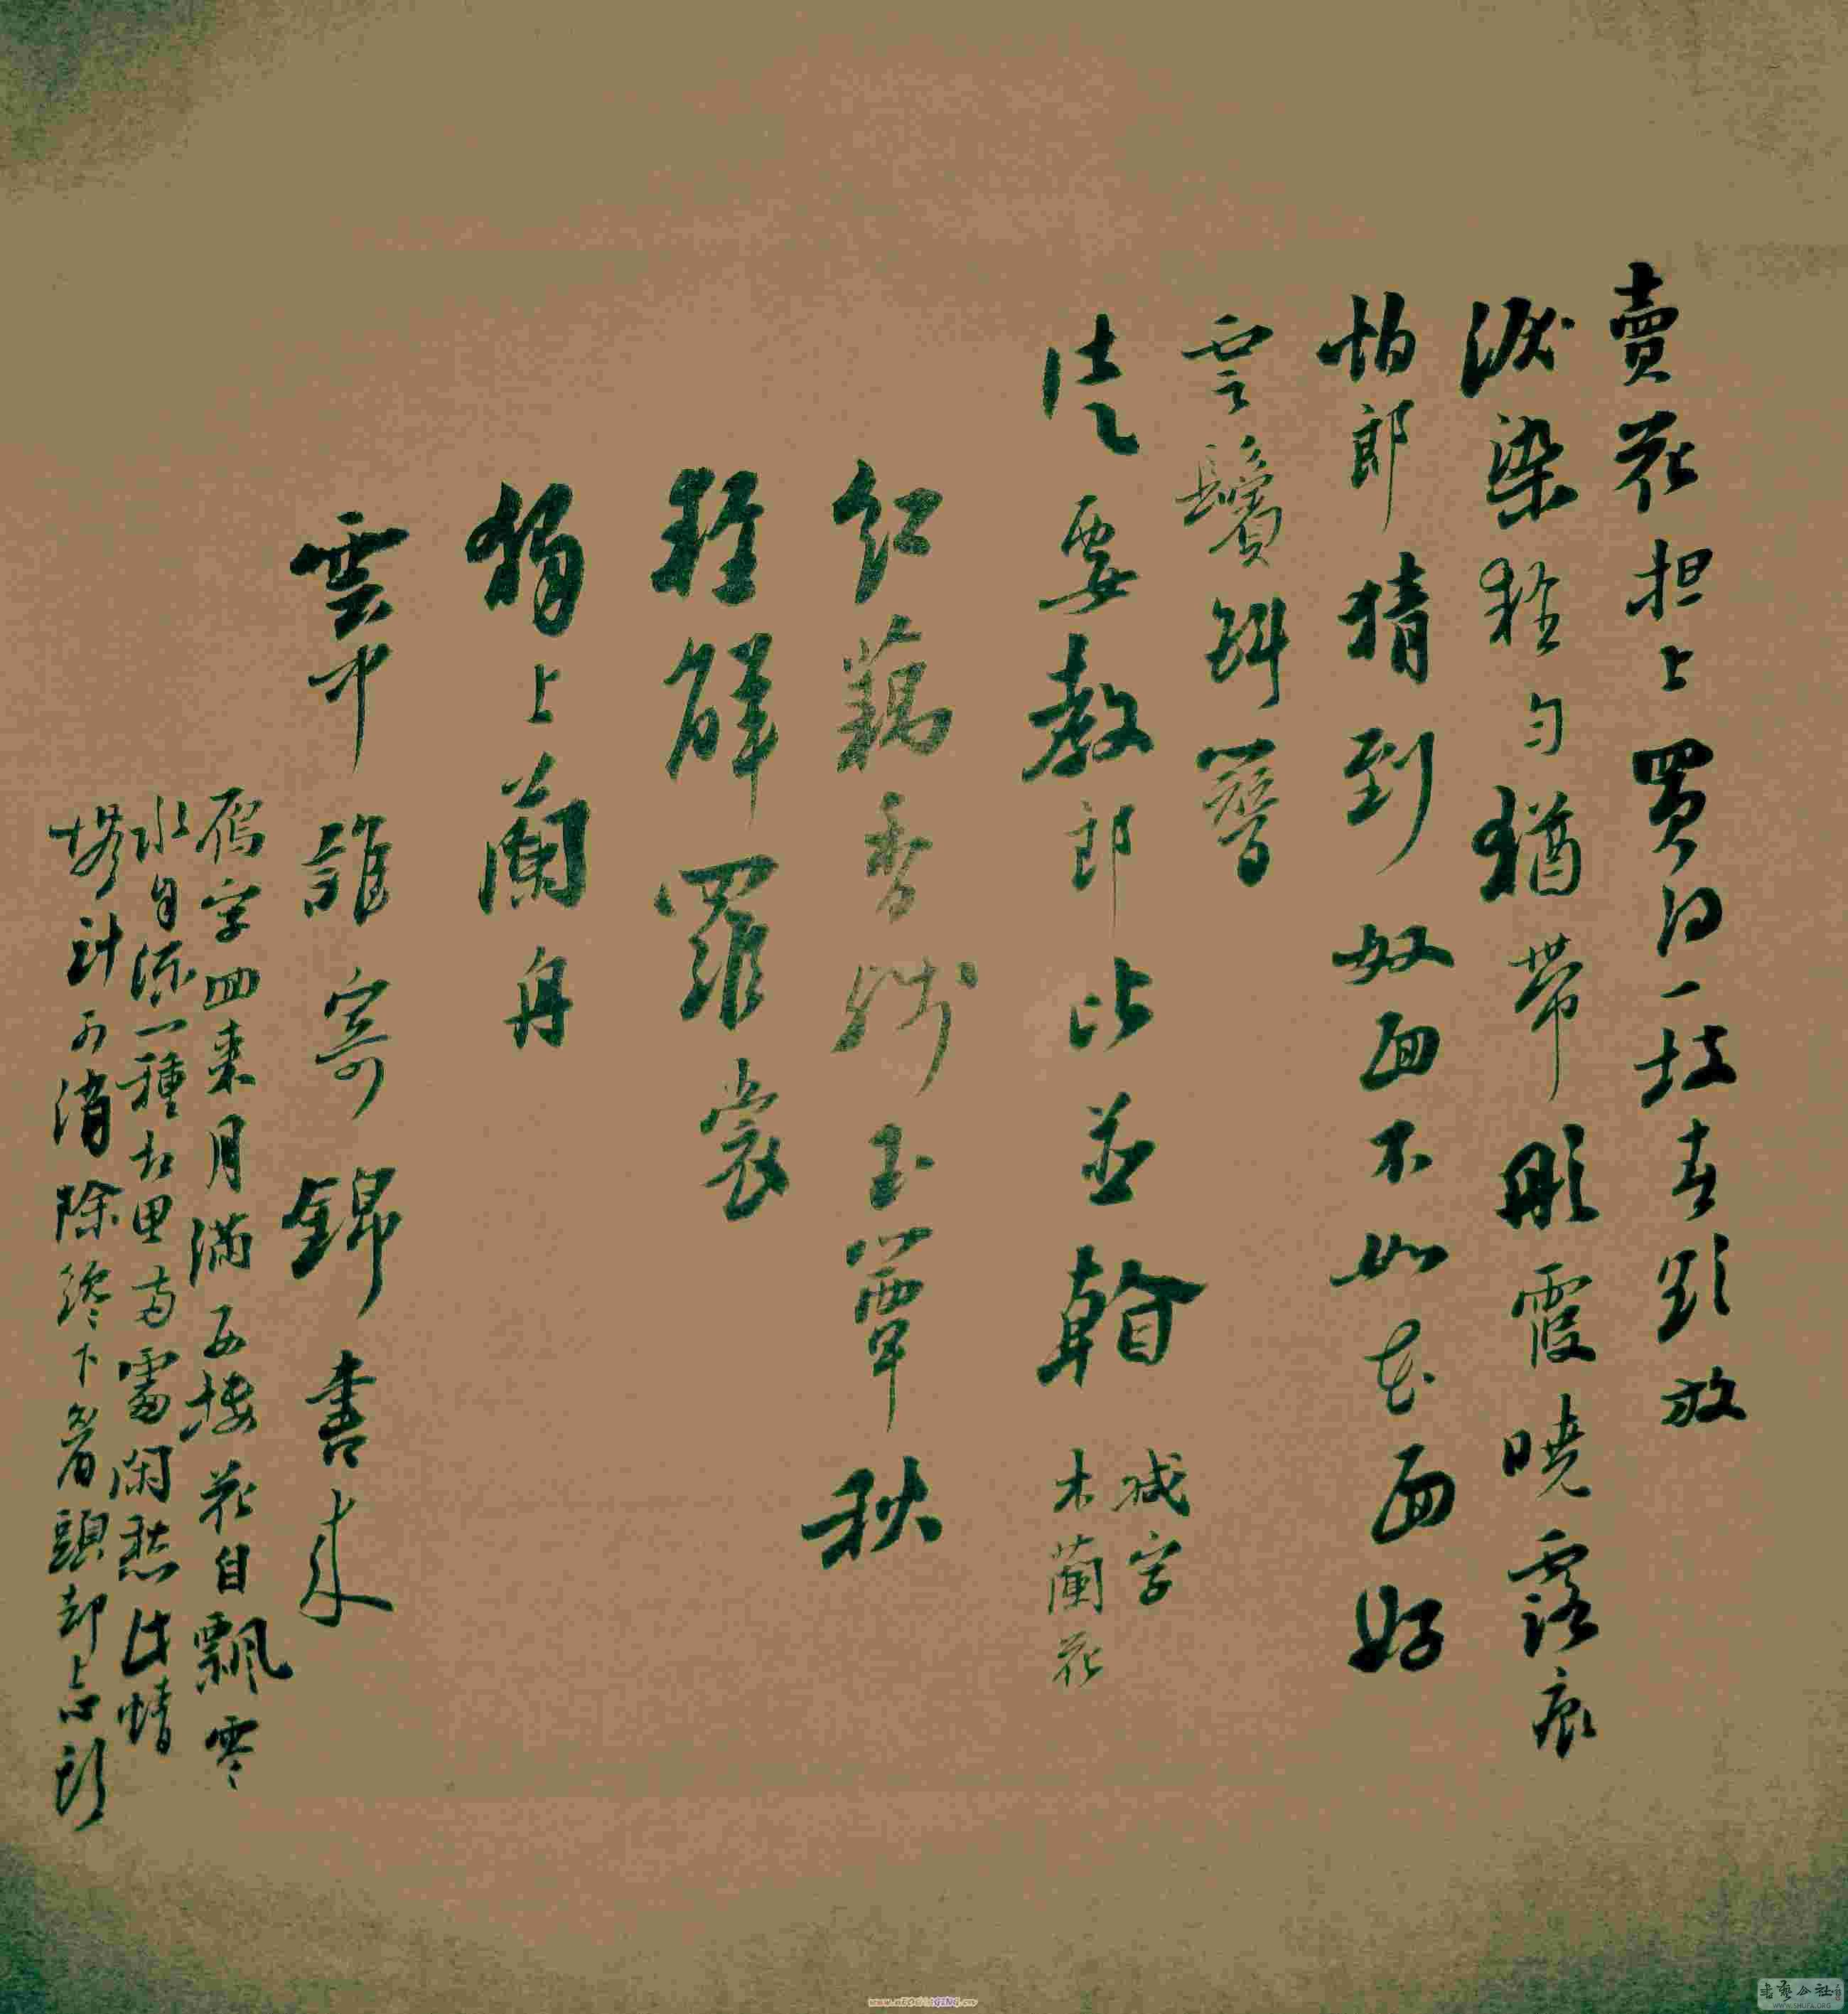 賣花担上買得一枝春欲放
淚染輕勻猶帶彤霞曉露痕
怕郎猜到奴面不如花面好
雲鬢斜簪
徒要教郎比並看
減字
木蘭花
紅藕香殘玉簟秋
輕解羅裳
獨上蘭舟
雲中誰寄錦書來
雁字回來月滿西樓花自飄零
水自流一種相思兩處閑愁此情
無計可消除纔下眉頭却上心頭
书艺公社
WWW.SHUFA.ORG